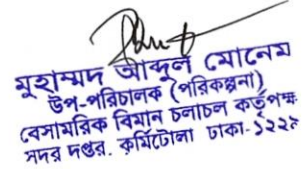 মুহাম্মদ আব্দুল মোনেম
উপ-পরিচালক (পরিকল্পনা)
বেসামরিক বিমান চলাচল কর্তৃপক্ষ
সদর দপ্তর. কুর্মিটোলা ঢাকা-১২২৯